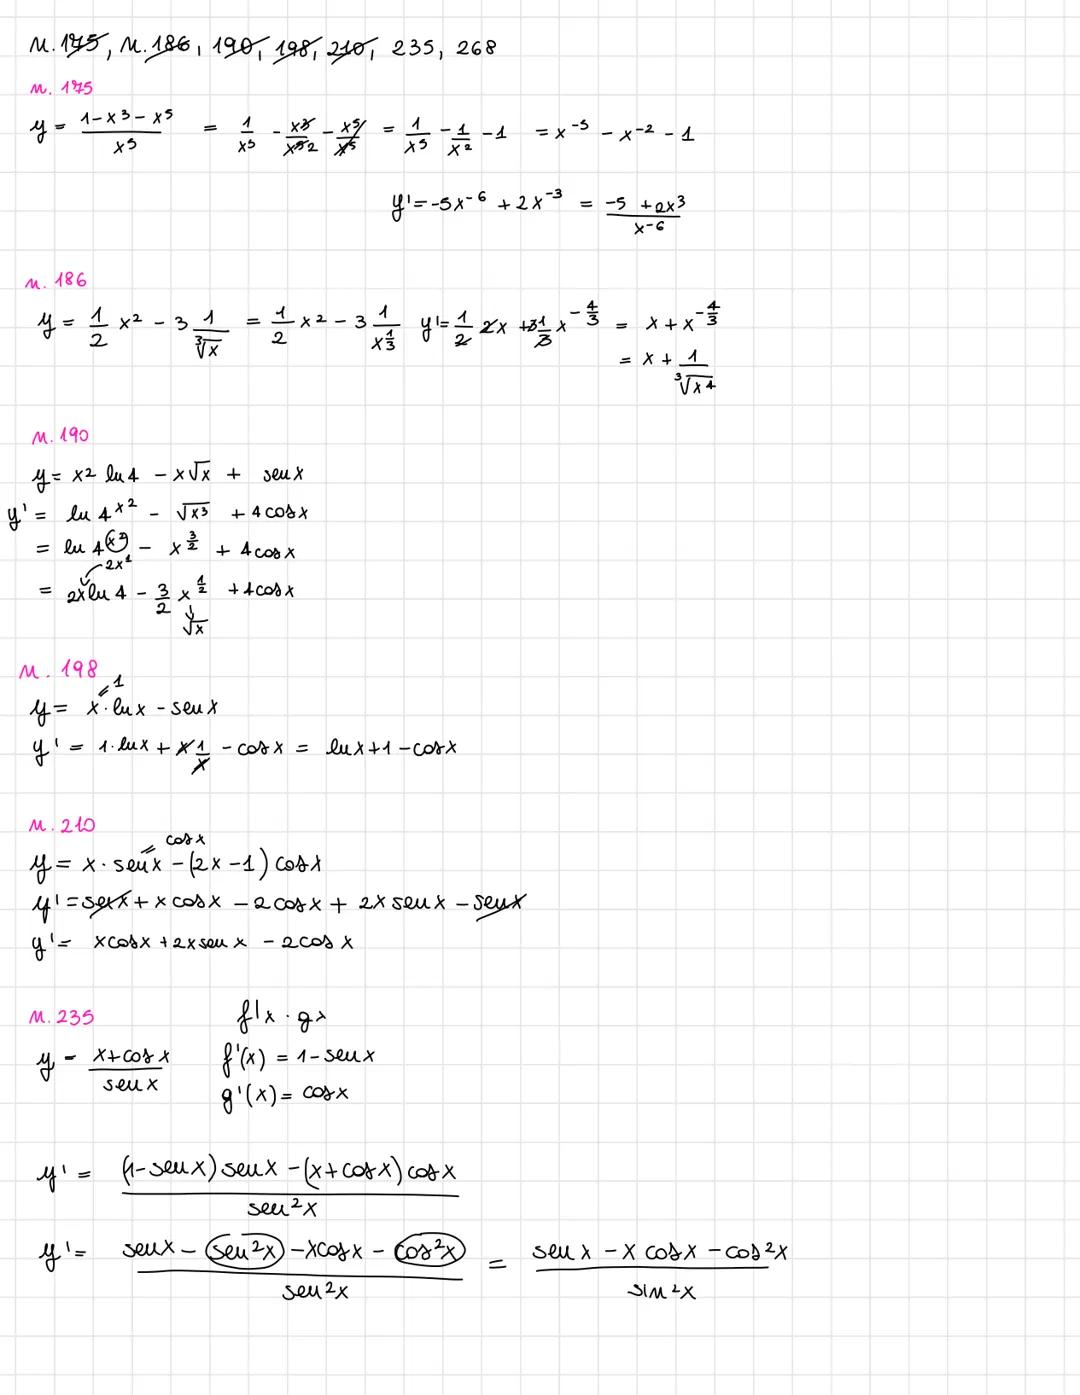 n.175, n.186, 190, 198, 210, 235, 268
n. 175
y = (1-x³-x⁵)/x⁵ = 1/x⁵ - x³/x⁵2 - x⁵/x⁵ = 1/x⁵ - 1/x² - 1 = x⁻⁵ - x⁻² - 1
y' = -5x⁻⁶ + 2x⁻³ = (-5 + 2x³)/x⁻⁶
n. 186
y = 1/2 x² - 3 1/∛x = 1/2 x² - 3 1/x^(1/3) y' = 1/2 2x + 3 1/3 x^(-4/3) = x + x^(-4/3)
= x + 1/∛x⁴
n. 190
y = x² ln 4 - x√x + sen x
y' = ln 4^x² - √x³ + 4 cos x
= ln 4^(x²) - x^(3/2) + 4 cos x
2x¹
= 2x ln 4 - 3/2 x^(1/2) + 4 cos x
√x
n. 198
1
y = x · ln x - sen x
y' = 1 · ln x + x 1/x - cos x = ln x + 1 - cos x
n. 210
cos x
y = x · sen x - (2x - 1) cos x
y' = sen x + x cos x - 2 cos x + 2x sen x - sen x
y' = x cos x + 2x sen x - 2 cos x
n. 235 f'x · gx
y = (x + cos x)/sen x f'(x) = 1 - sen x
g'(x) = cos x
y' = ((1 - sen x) sen x - (x + cos x) cos x)/sen²x
y' = (sen x - sen²x - x cos x - cos²x)/sen²x = (sen x - x cos x - cos²x)/sin²x